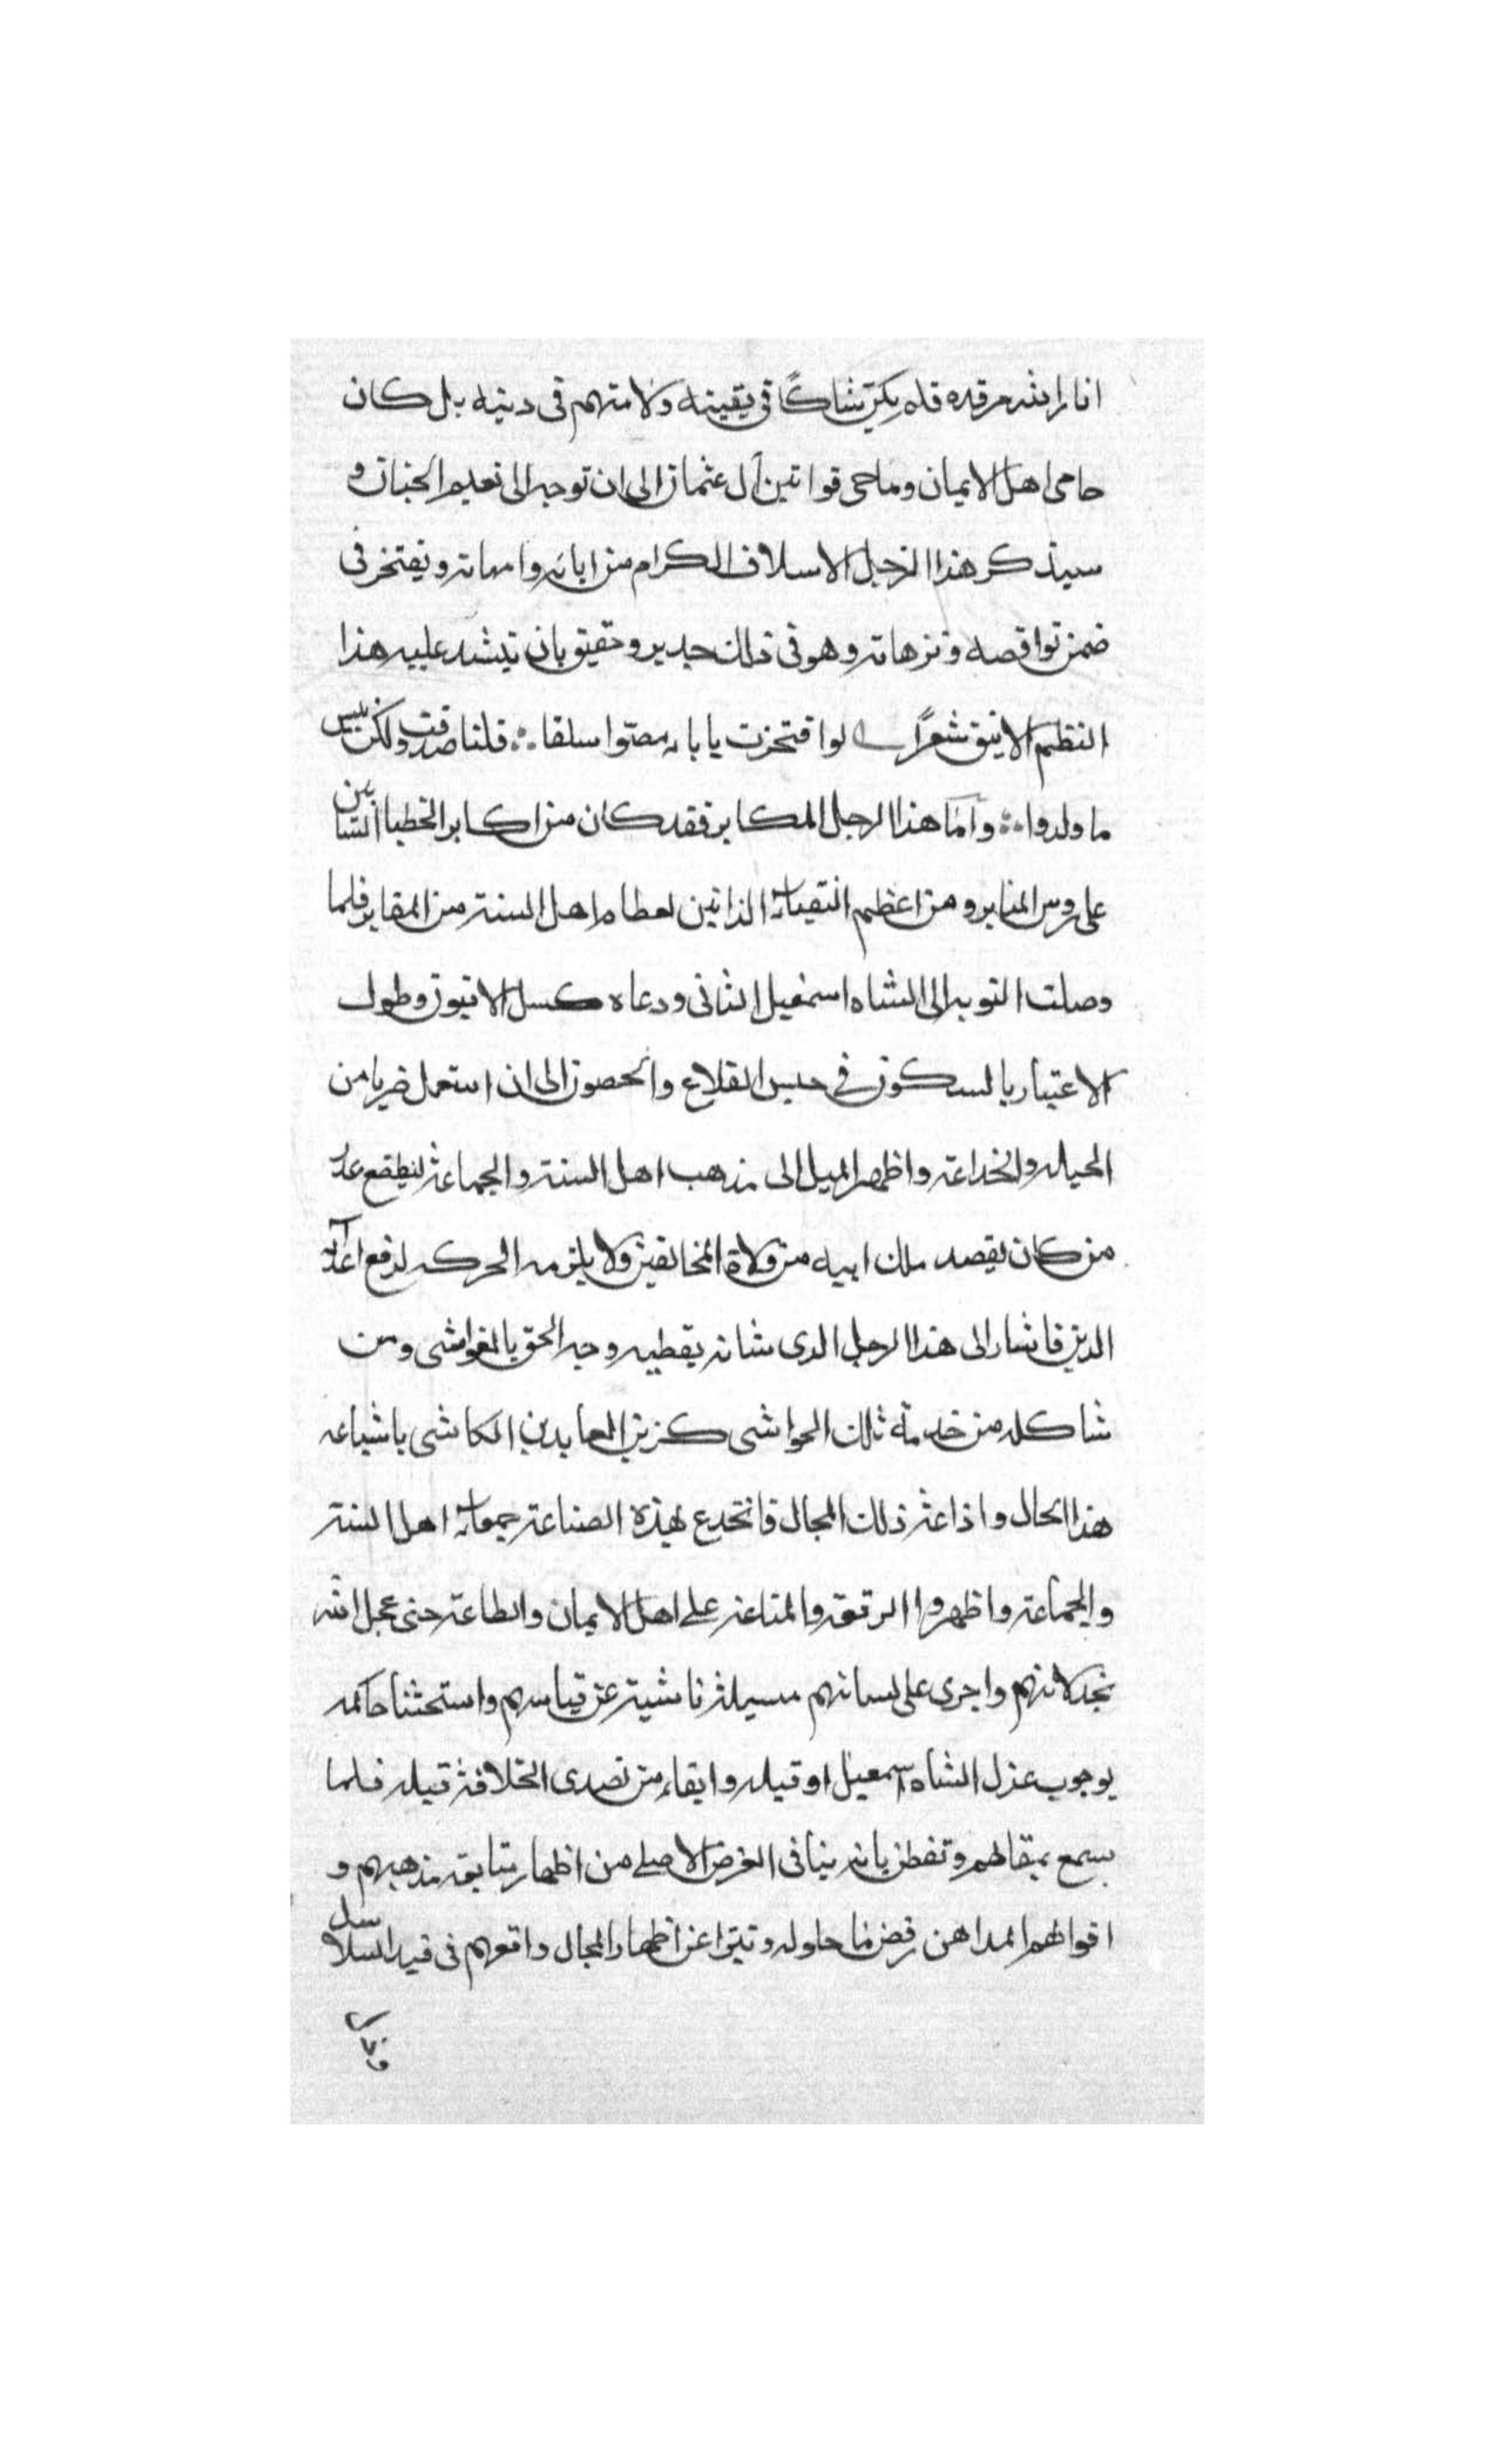 انار الله مرقده فلم يكن شاكًا فى يقينه ولا متهم فى دينه بل كان
حامى اهل الايمان وماحى قوانين آل عثمان الى ان توجه الى نعيم الجنان و
سيذكر هذا الرجل الاسلاف الكرام من ابائه وامهاته ويفتخر فى
ضمن نواقصه وتزهاته وهو فى ذلك جدير وحقيق بان ينشد عليه هذا
النظم الانيق شعرًا لو افتخرت يابا مضوا سلفا قلنا صدقت ولكن بيس
ما ولدوا واما هذا الرجل المكابر فقد كان من اكابر الخطبا السابين
على روس المنابر ومن اعظم النقبات الذابين لعظام اهل السنة من المقابر فلما
وصلت النوبه الى الشاه اسمعيل الثانى ودعاه كسل الافيون وطول
الاعتبار بالسكون فى حبس القلاع والحصون الى ان استعمل ضربا من
الحيله والخداعة واظهر الميل الى مذهب اهل السنة والجماعة لينطقع عذر
من كان يقصد ملك ابيه من ولاة المخالفين ولا يلزمه الحركه لدفع اعداء
الدين فاشار الى هذا الرجل الدى شانه يغطيه وجه الحق بالغواشى ومن
شاكله من خدمة تلك الحواشى كزين العابدين الكاشى باشياعه
هذا الحال واذاعة ذلك المجال فانخدع بهذه الصناعة جمعات اهل السنة
والجماعة واظهروا الرقعه والمناعه على اهل الايمان والطاعة حتى عجل الله
بخذلانهم واجرى على لسانهم مسيلة ناشية عن قياسهم واستحثنا حاكمه
بوجوب عزل الشاه اسمعيل او قيله وابقاء من تصدى الخلافة قبله فلما
سمع بمقالهم وتفطن بانه ينافى الغرض الاصلى من اظهار متابعه مذهبهم و
اقوالهم المداهن رفض ما حاوله وتبرا عن اظهار المجال واقعهم فى قيد السلاسل